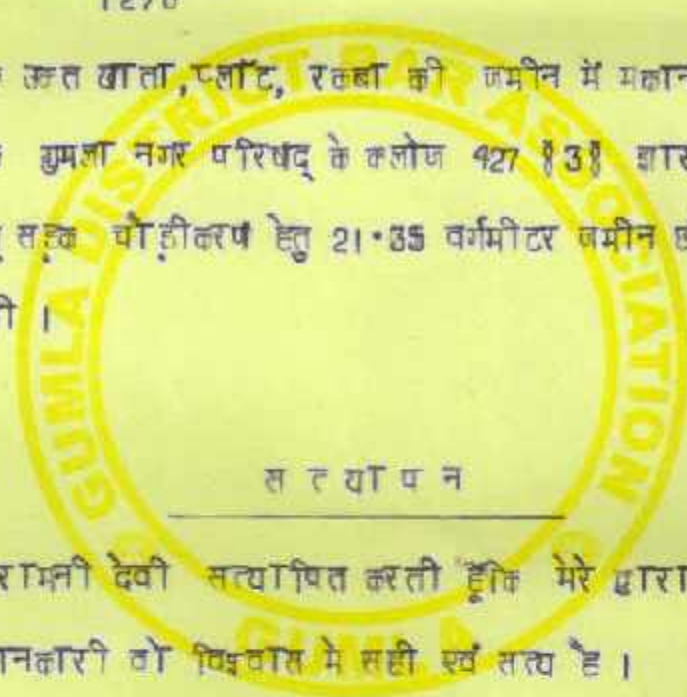 1276
उक्त खाता,प्लॉट, रकबा की जमीन में मकान
गुमला नगर परिषद् के क्लोज 427 §3§
सड़क चौड़ीकरण हेतु 21·35 वर्गमीटर जमीन
ी ।
स त्या प न
देवी सत्यापित करती हूँकि मेरे द्वारा
जानकारी वो विश्वास मे सही एवं सत्य है ।
GUMLA DISTRICT BAR ASSOCIATION
GUMLA